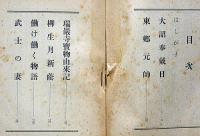 目次
はしがき
大詔奉戴日
東郷元帥
瑞巌寺寶物由来記
柳生月新蔭
働け働く物語
武士の妻